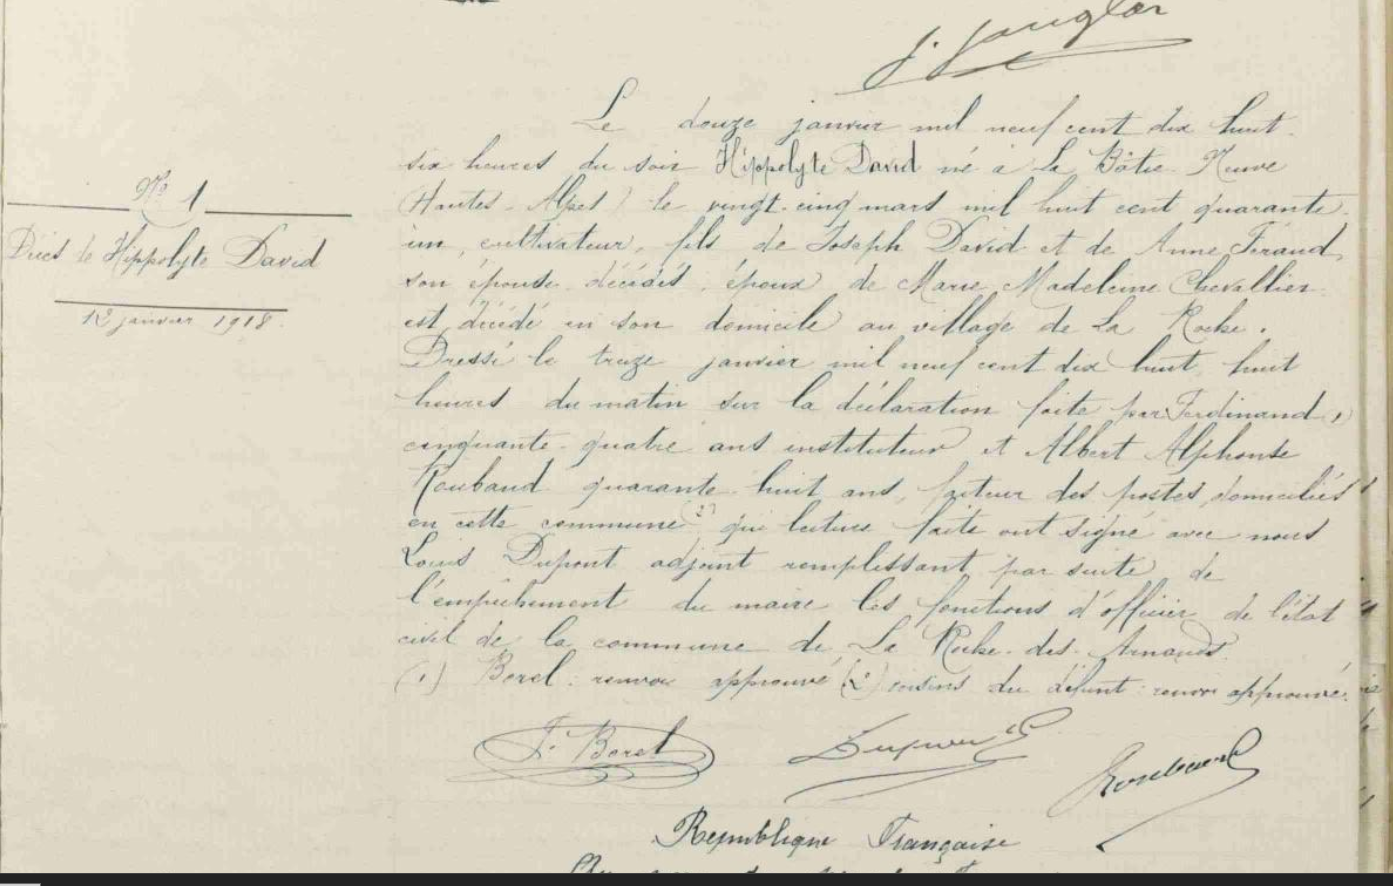 J. Jauglar
Le douze janvier mil neuf cent dix huit
six heures du soir Hippolyte David né à La Bâtie-Neuve
(Hautes-Alpes) le vingt-cinq mars mil huit cent quarante-
un, cultivateur, fils de Joseph David et de Anne Féraud,
son épouse décédés, époux de Marie Madeleine Chevallier
est décédé en son domicile au village de La Roche.
Dressé le treize janvier mil neuf cent dix huit, huit
heures du matin sur la déclaration faite par Ferdinand (1)
cinquante-quatre ans instituteur et Albert Alphonse
Roubaud quarante-huit ans, facteur des postes, domiciliés
en cette commune (2) qui lecture faite ont signé avec nous
Louis Dupont adjoint remplissant par suite de
l'empêchement du maire les fonctions d'officier de l'état
civil de la commune de La Roche-des-Arnauds.
(1) Borel: renvoi approuvé (2) voisins du défunt: renvoi approuvé.
F. Borel
Roubaud
N° 1
Décès de Hippolyte David
12 janvier 1918.
Republique Française